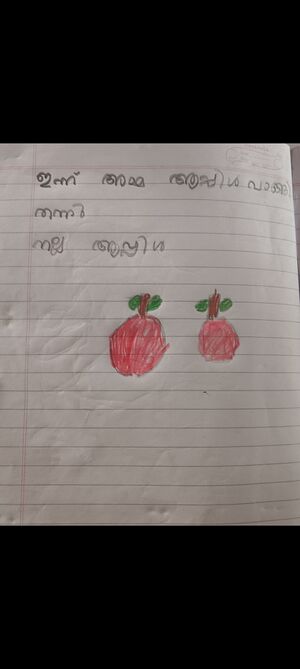 ഇന്ന് അമ്മ ആപ്പിൾ വാങ്ങി
തന്നു
നല്ല ആപ്പിൾ